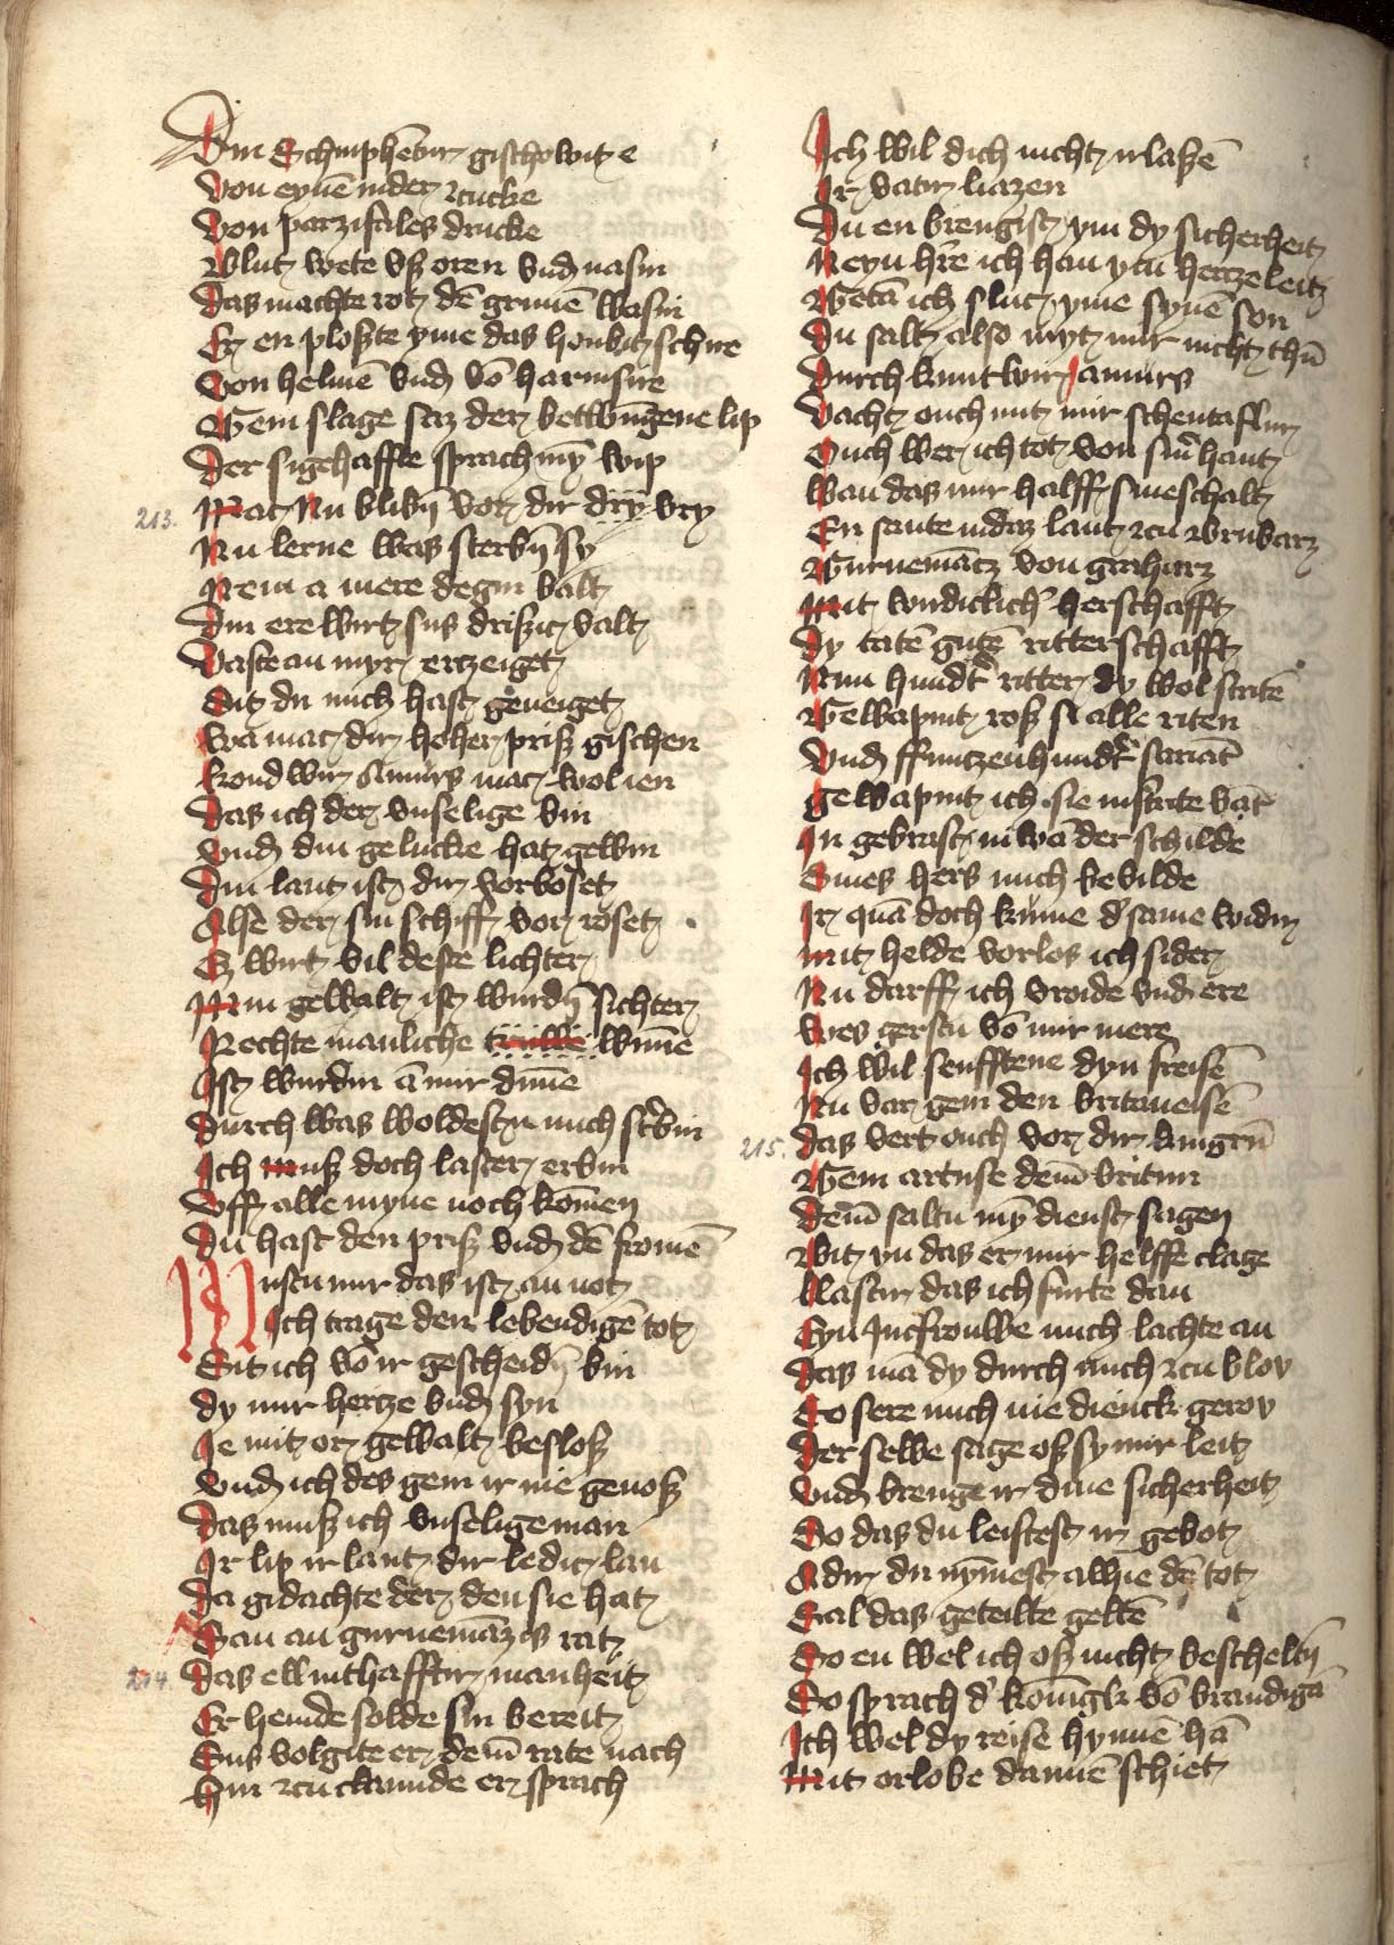 Din Schinphētur gischowitz e
von eynē inder rucke
von parzifales drucke
Blut wete vß oren vnd nasin
Das machte rot dē grunē wasin
Er en ploßte yme das houbit schire
Von helmē vnd vō harnisire
Gein slage saz der betwūgene lip
Der sigehaffte sprach mȳ wip
213. Mac Nu blibn̄ vor dir dry vry
Nu lerne was sterbn̄ sy
Nein a mere degin balt
Din ere wirt sus drißict valt
Vaste an myr erczeiget
Sit du mich hast geneiget
Wa mac dir hoher priß gischen
kondwir Amurs mac wol ien
Das ich der vnselige bin
vnd din gelucke hat gewin
Din lant ist dir vorboset
Alse der sin schiff vor roset
Ez wirt vil deste lichter
Min gewalt ist wurdn̄ sichter
Rechte manliche wūne
Ist wurdin ā mir dūne
Durch was woldestu mich st'bin
Ich muß doch laster erbin
Vff alle myne noch komen
Du hast den priß vnd dē fromē
Nustu mir das ist an not
Ich trage den lebendigē tot
Sit ich vō ir gescheidn̄ bin
dy mir hertze vnd syn
Ie mit or gewalt besloß
vnd ich des gein ir nie genoß
Das muß ich vnselige man
Ir lip ir lant dir ledic lan
Da gidachte der den sie hat
San an gurnemāzes rat
214. Das ellinthafftir manheit
Er hemde solde sin bereit
Sus volgite er dem rate nach
Hin zcu clamide er sprach
Ich wil dich nicht irlaßē
Ir vatir liazen
Du en brengist ym dy sicherheit
Neyn h're ich han ym hertzeleit
Getā ich sluc yme synē son
Du salt also myt mir nicht thū
Durch kuntwir amurs
Vacht ouch mit mir schentaflurs
Ouch wer ich tot von sin' hant
Wan das mir halff sineschalt
En sante indaz lant zcu Brubarz
Gurnemātz von graharz
Mit wirdiclich' herschafft
Dy tatē gutē ritterschafft
Nun hund't ritter dy wol stritē
Gewapint roß si alle riten
Vnd ffumtzenhund't sariāt
gewapint ich sie instrite vāt
In gebrast niwā der schilde
Sines hers mich bevilde
Ir quā doch kūme d' same widir
mit helde vorlos ich sider
Nu darff ich vroide vnd ere
Wes gerstu vō mir mere
Ich wil senfftene dyn freisē
Nu var gein den britaneisē
215. Das vert ouch vor dir kingrū
Gein artuse dem britun
Dem saltu mȳ dienst sagen
Bit yn das er mir helffe clage
Lastir das ich furte dan
Eyn Jncfrouwe mich lachte an
Das mā dy durch mich zcu blov
So sere mich nie dienck gerov
Der selbe sage oß sy mir leit
Vnd brenge ir dine sicherheit
So das du leistest ir gebot
Adir du nȳmest alhie dē tot
Sal das geteilte geltē
So en wel ich oß nicht beschelth̄
So sprach d' konigk vō brandigā
Ich wel dy reise hynnē hā
Mit orlobe dannē schiet